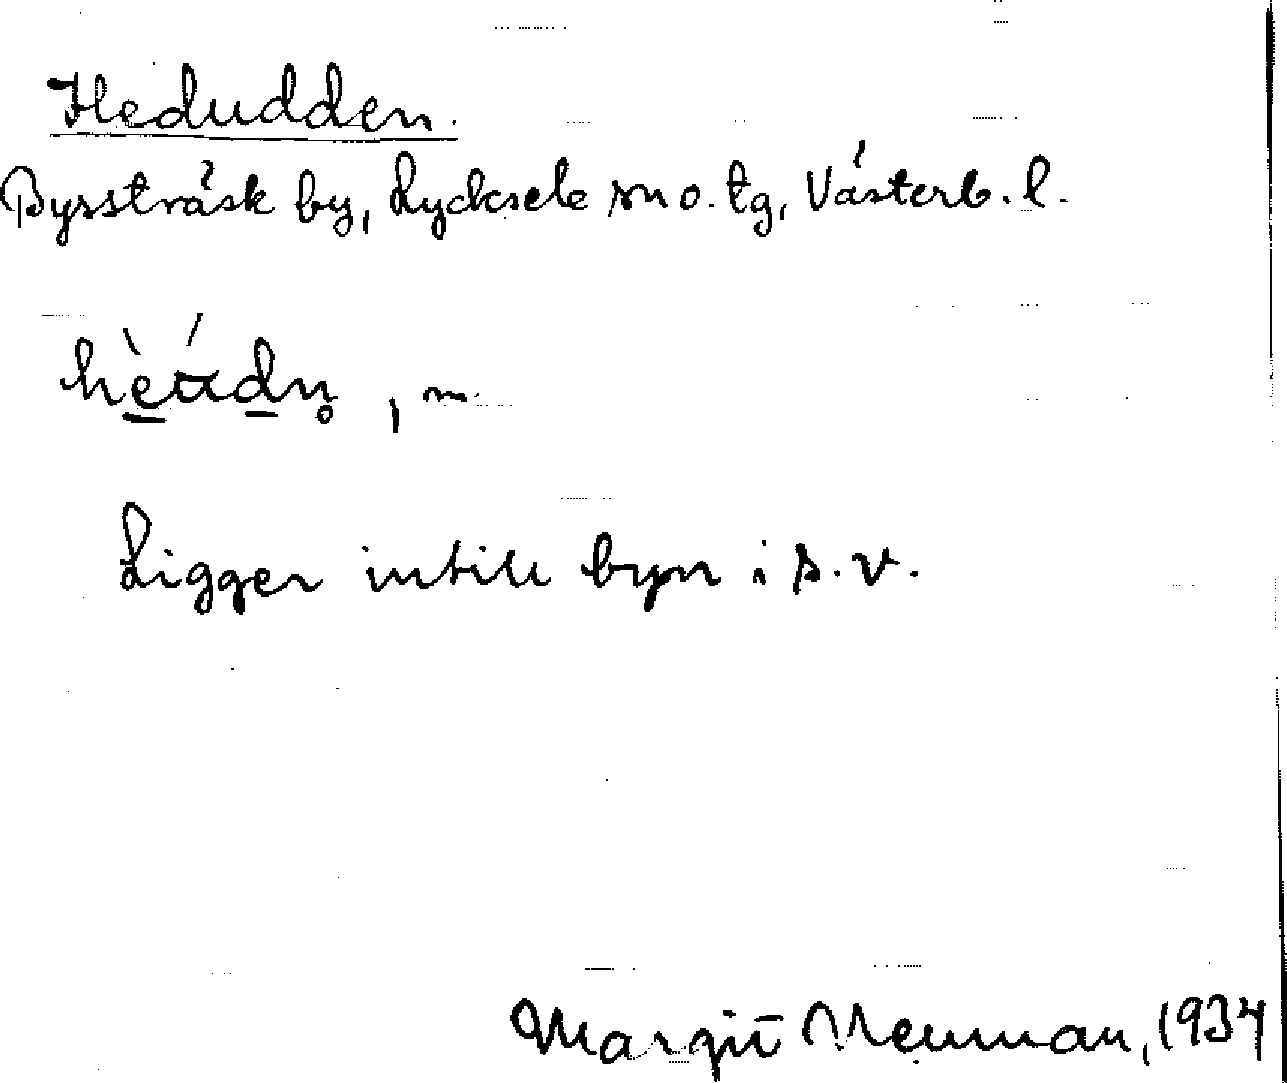 Hedudden.
Byssträsk by, Lycksele sn o. tg, Västerb. l.
, m.
Ligger intill byn i s.v.
Margit Neuman, 1934